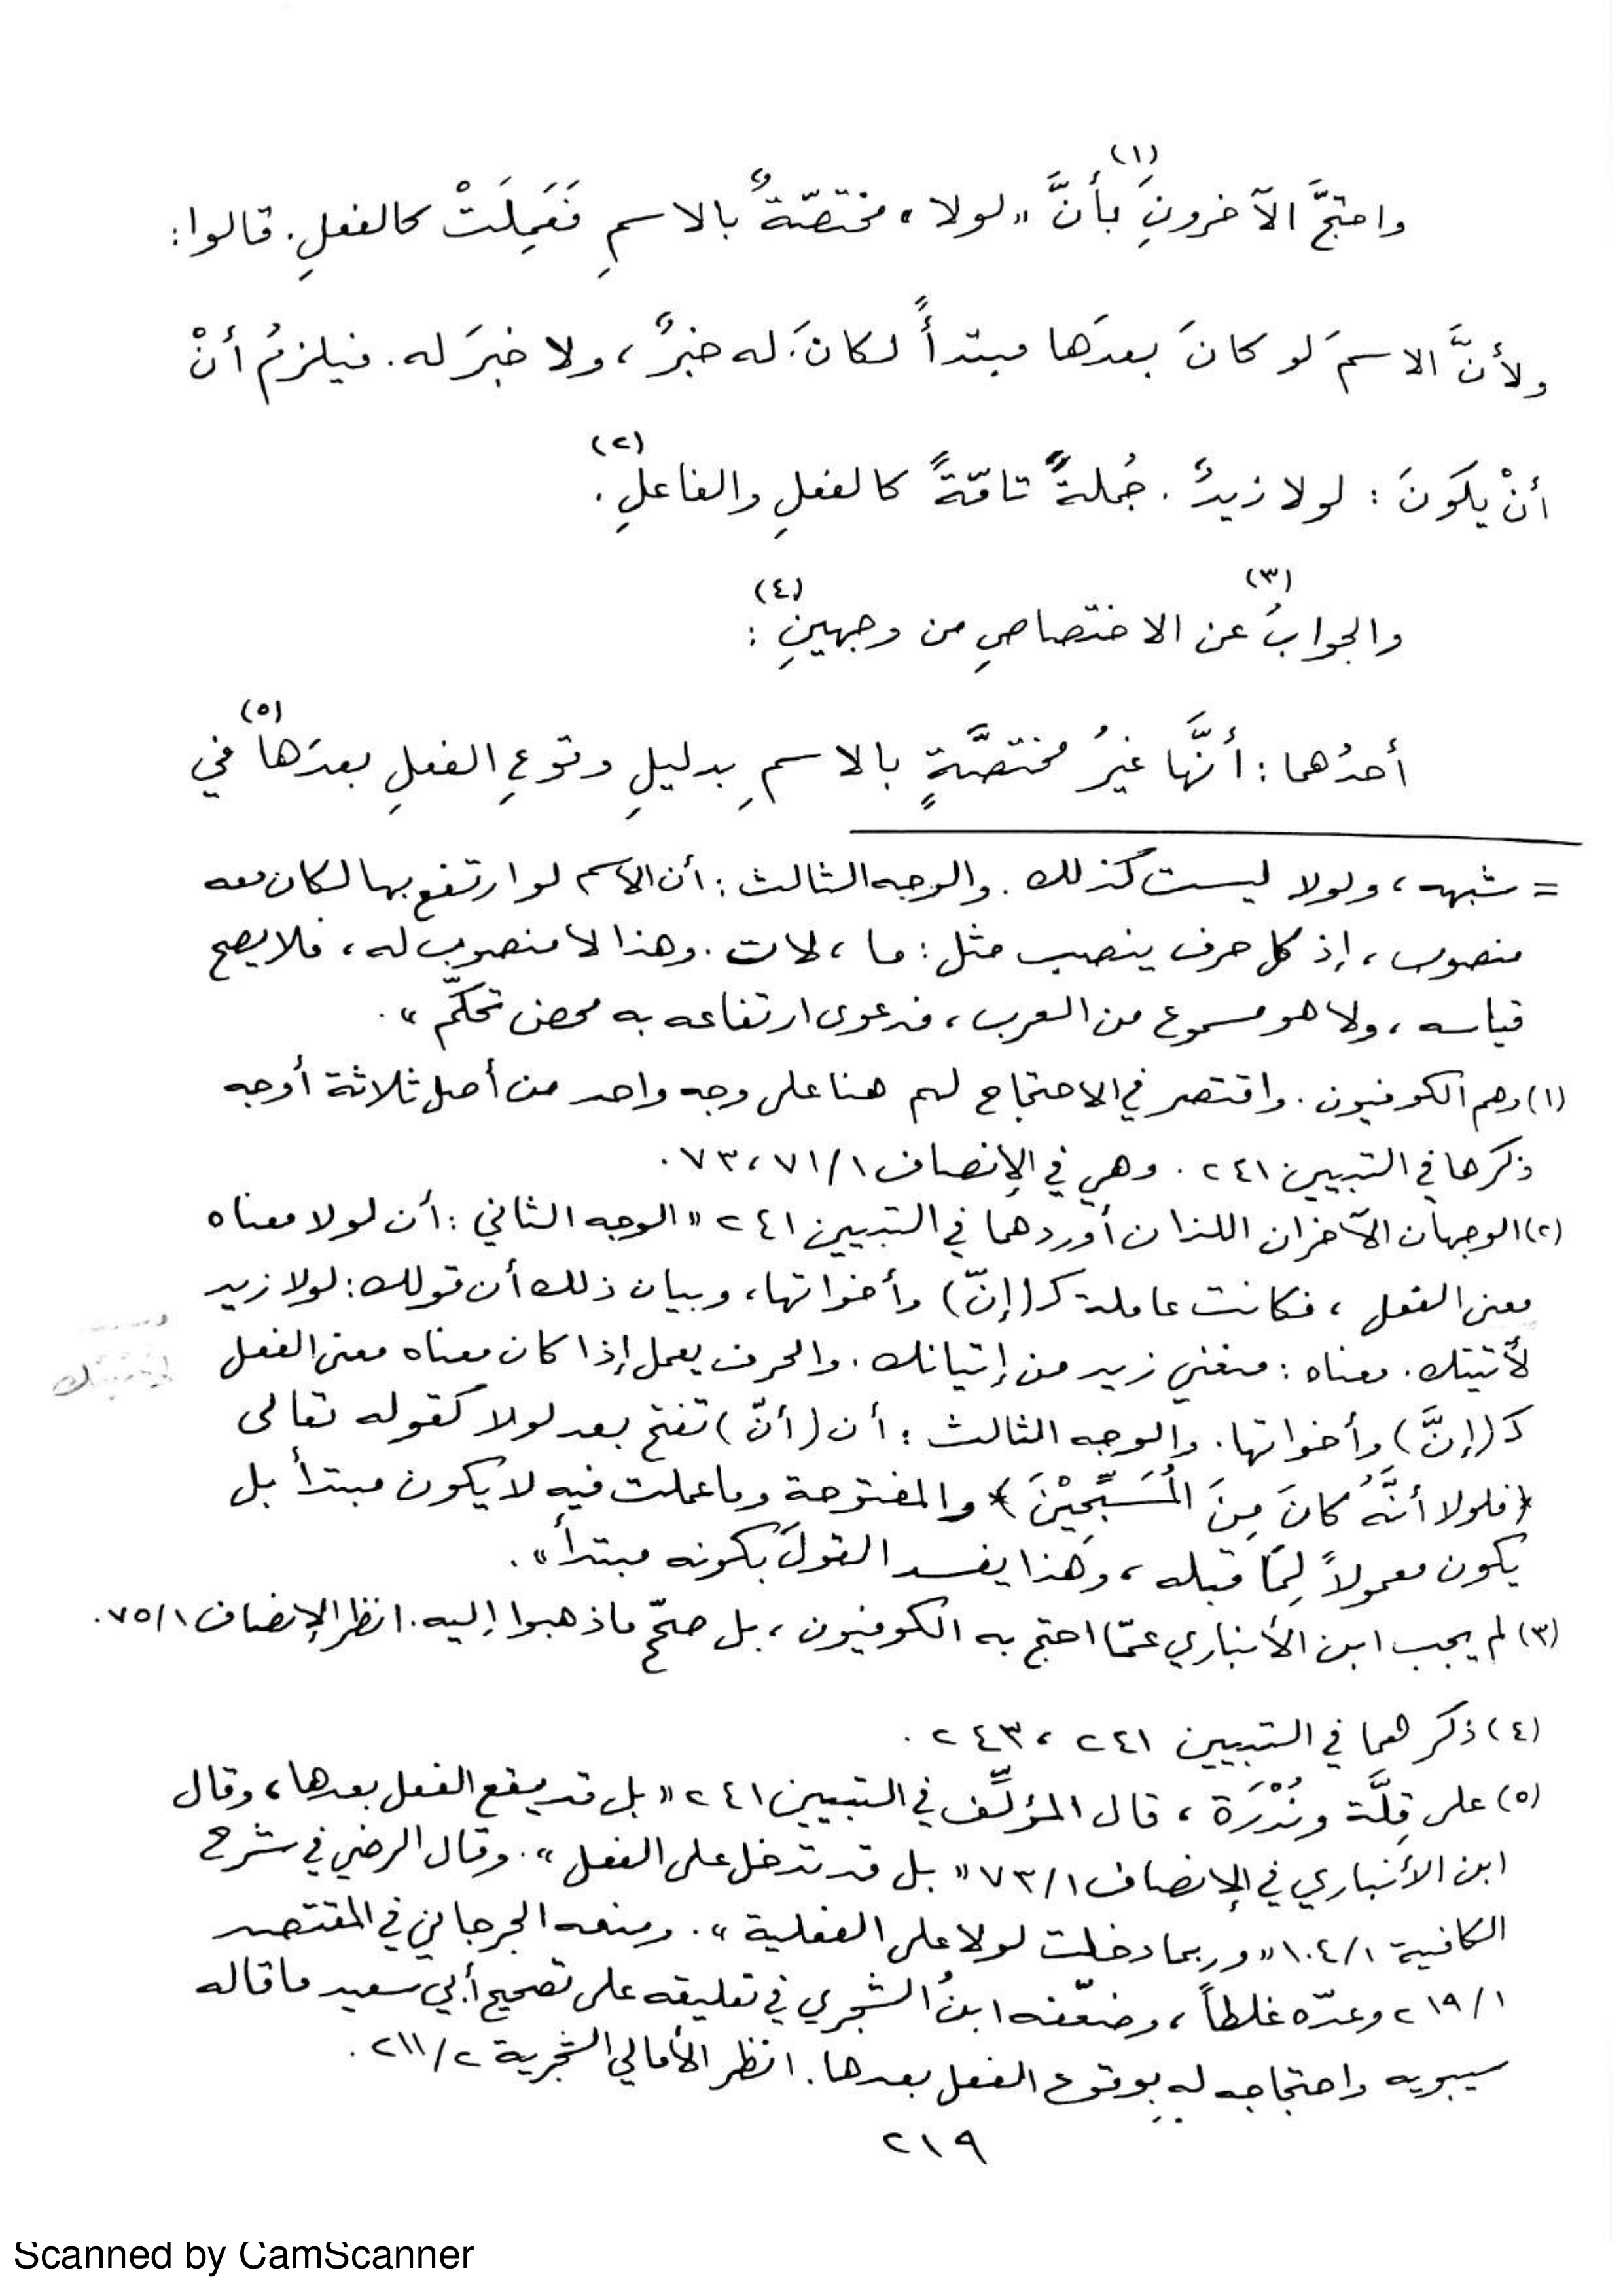 واحتجَّ الآخرونَ(١) بأنَّ «لولا» مختصّةٌ بالاسمِ فَعَمِلَتْ كالفعلِ. قالوا:
ولأنَّ الاسمَ لو كانَ بعدَها مبتدأً لكانَ له خبرٌ، ولا خبرَ له. فيلزمُ أنْ
أنْ يكونَ: لولا زيدٌ. جُملةً تامّةً كالفعلِ والفاعلِ(٢).
والجوابُ(٣) عن الاختصاصِ من وجهينِ(٤):
أحدُهما: أنَّها غيرُ مختصَّةٍ بالاسمِ بدليلِ وقوعِ الفعلِ بعدَها(٥) في
= شبهه، ولولا ليست كذلك. والوجه الثالث: أن الاسم لو ارتفع بها لكان معه
منصوب، إذ كل حرف ينصب مثل: ما، لات. وهذا لا منصوب له، فلا يصح
قياسه، ولا هو مسموع من العرب، فدعوى ارتفاعه به محض تحكّم».
(١) وهم الكوفيون. واقتصر في الاحتجاج لهم هنا على وجه واحد من أصل ثلاثة أوجه
ذكرها في التبيين ٢٤١. وهي في الإنصاف ٧١/١، ٧٣.
(٢) الوجهان الآخران اللذان أوردهما في التبيين ٢٤١ «الوجه الثاني: أن لولا معناه
معنى الفعل، فكانت عاملة كـ(إنّ) وأخواتها، وبيان ذلك أن قولك: لولا زيد
لأتيتك. معناه: منعني زيد من إتيانك. والحرف يعمل إذا كان معناه معنى الفعل
كـ(إنَّ) وأخواتها. والوجه الثالث: أن (أنّ) تفتح بعد لولا كقوله تعالى
﴿فلولا أنَّهُ كانَ مِنَ المُسَبِّحِيْنَ﴾ والمفتوحة وما عملت فيه لا يكون مبتدأ بل
يكون معمولاً لِمَا قبله، وهذا يفسد القولَ بكونه مبتدأ».
(٣) لم يجب ابن الأنباري عمّا احتج به الكوفيون، بل صحّح ماذهبوا إليه. انظر الإنصاف ٧٥/١.
(٤) ذكرهما في التبيين ٢٤١، ٢٤٣.
(٥) على قِلَّة ونُدْرَة، قال المؤلِّف في التبيين ٢٤١ «بل قد يقع الفعل بعدها، وقال
ابن الأنباري في الإنصاف ٧٣/١ «بل قد تدخل على الفعل». وقال الرضي في شرح
الكافية ١٠٤/١ «وربما دخلت لولا على الفعلية». ومنعه الجرجاني في المقتصد
٢١٩/١ وعدّه غلطاً، وضعّفه ابنُ الشجري في تعليقه على تصحيح أبي سعيد ما قاله
سيبويه واحتجاجه له بوقوع الفعل بعدها. انظر الأمالي الشجرية ٢١١/٢.
٢١٩
Scanned by CamScanner